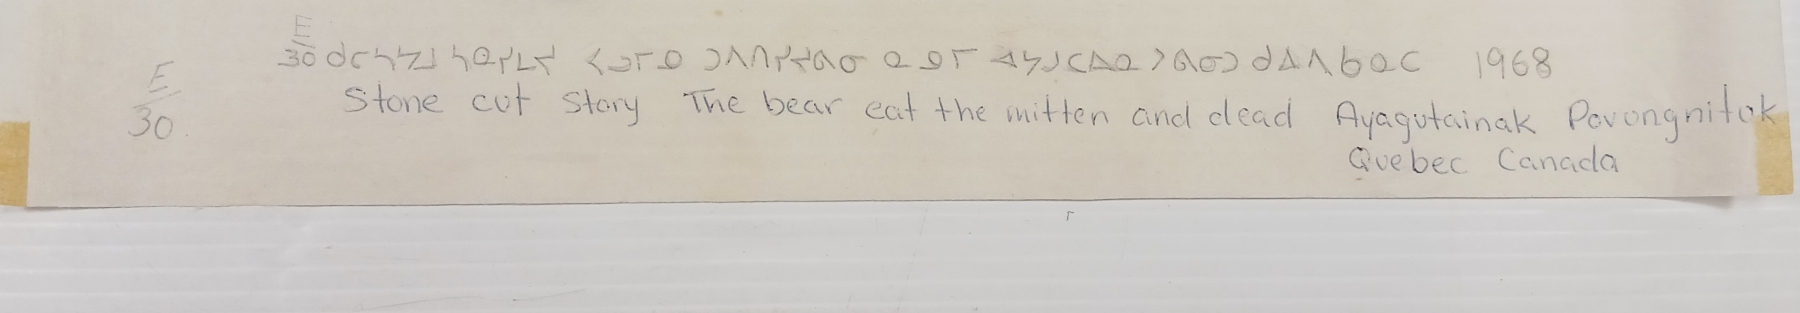 E
30 ᑯᑕᓴᔭᒧ ᓴᓇᓯᒪᔪ ᐸᓗᒥᓄ ᑐᐱᑎᓯᔪᕕᓂ ᓇᓄᒥ ᐊᔭᒍᑕᐃᓇ ᐳᕕᓂᑐ ᑯᐃᐱ ᑲᓇᑕ 1968
E
30 Stone cut story The bear eat the mitten and dead Ayagutainak Povongnitok
Quebec Canada